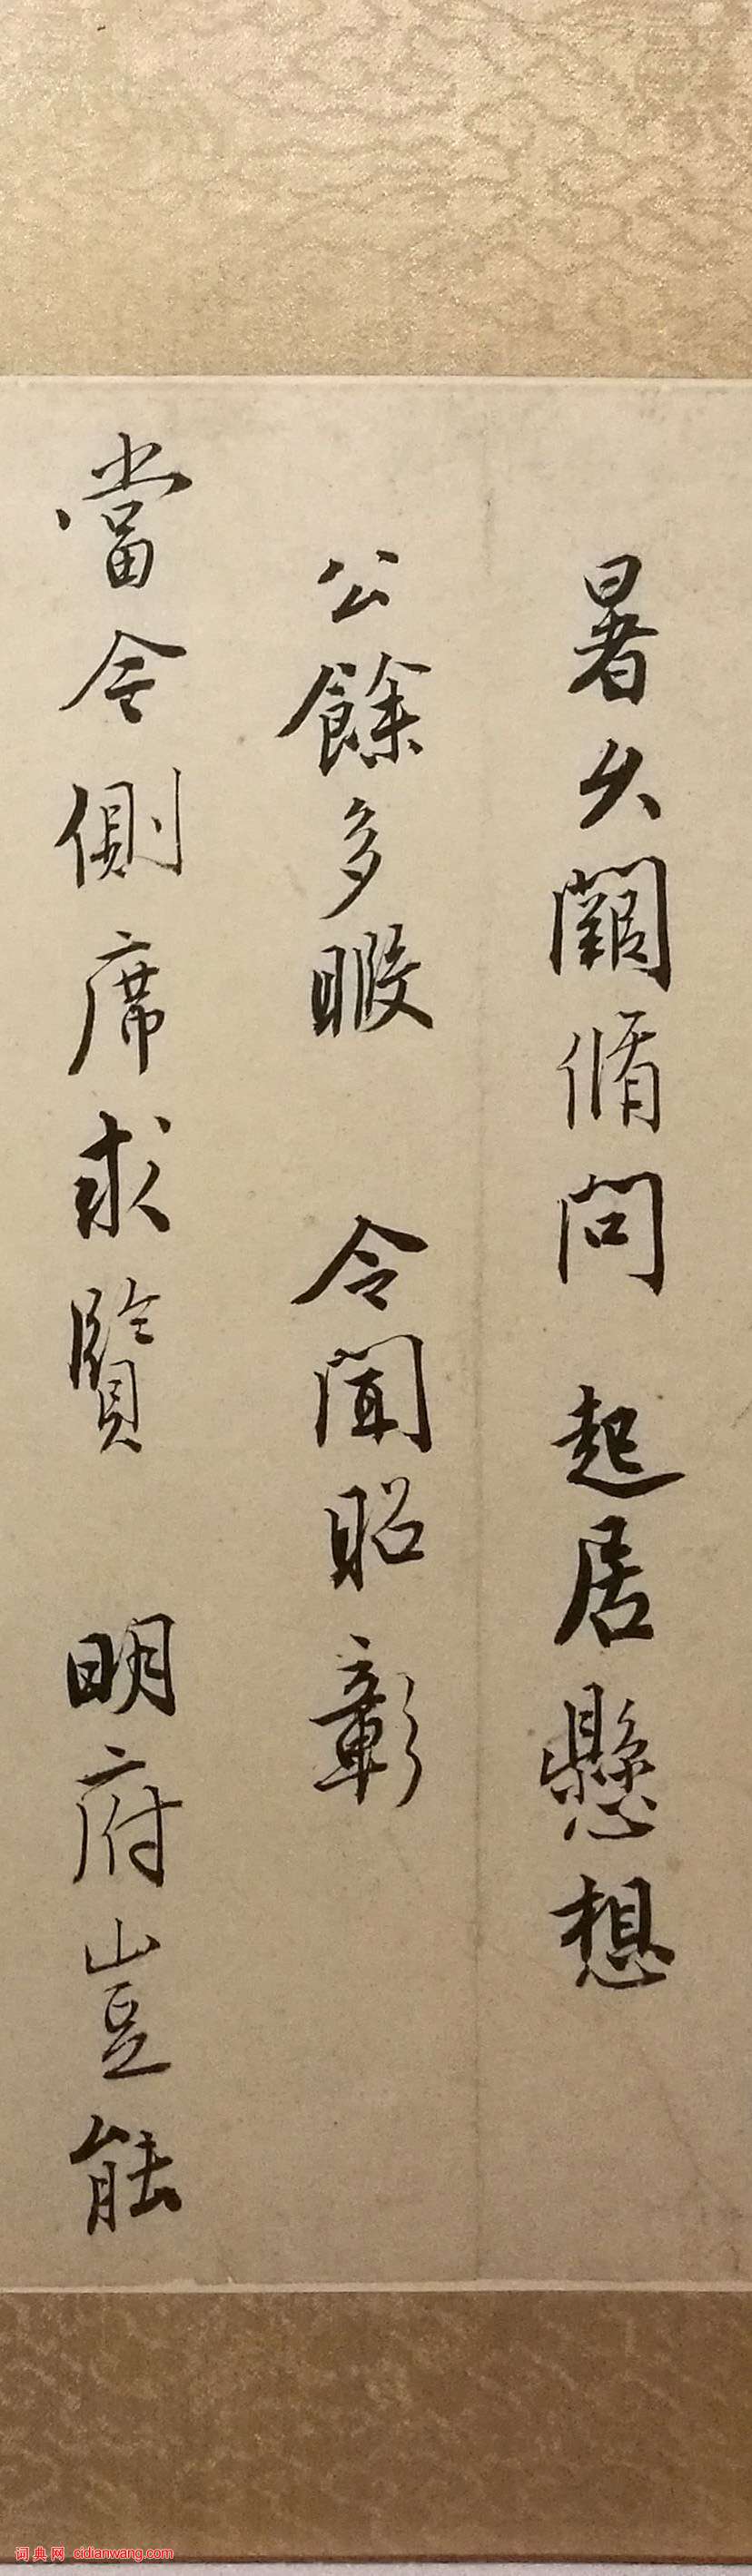 暑久闊脩問 起居懸想
公餘多暇 令聞昭彰
當今側席求賢 明府豈能
词典网 cidianwang.com